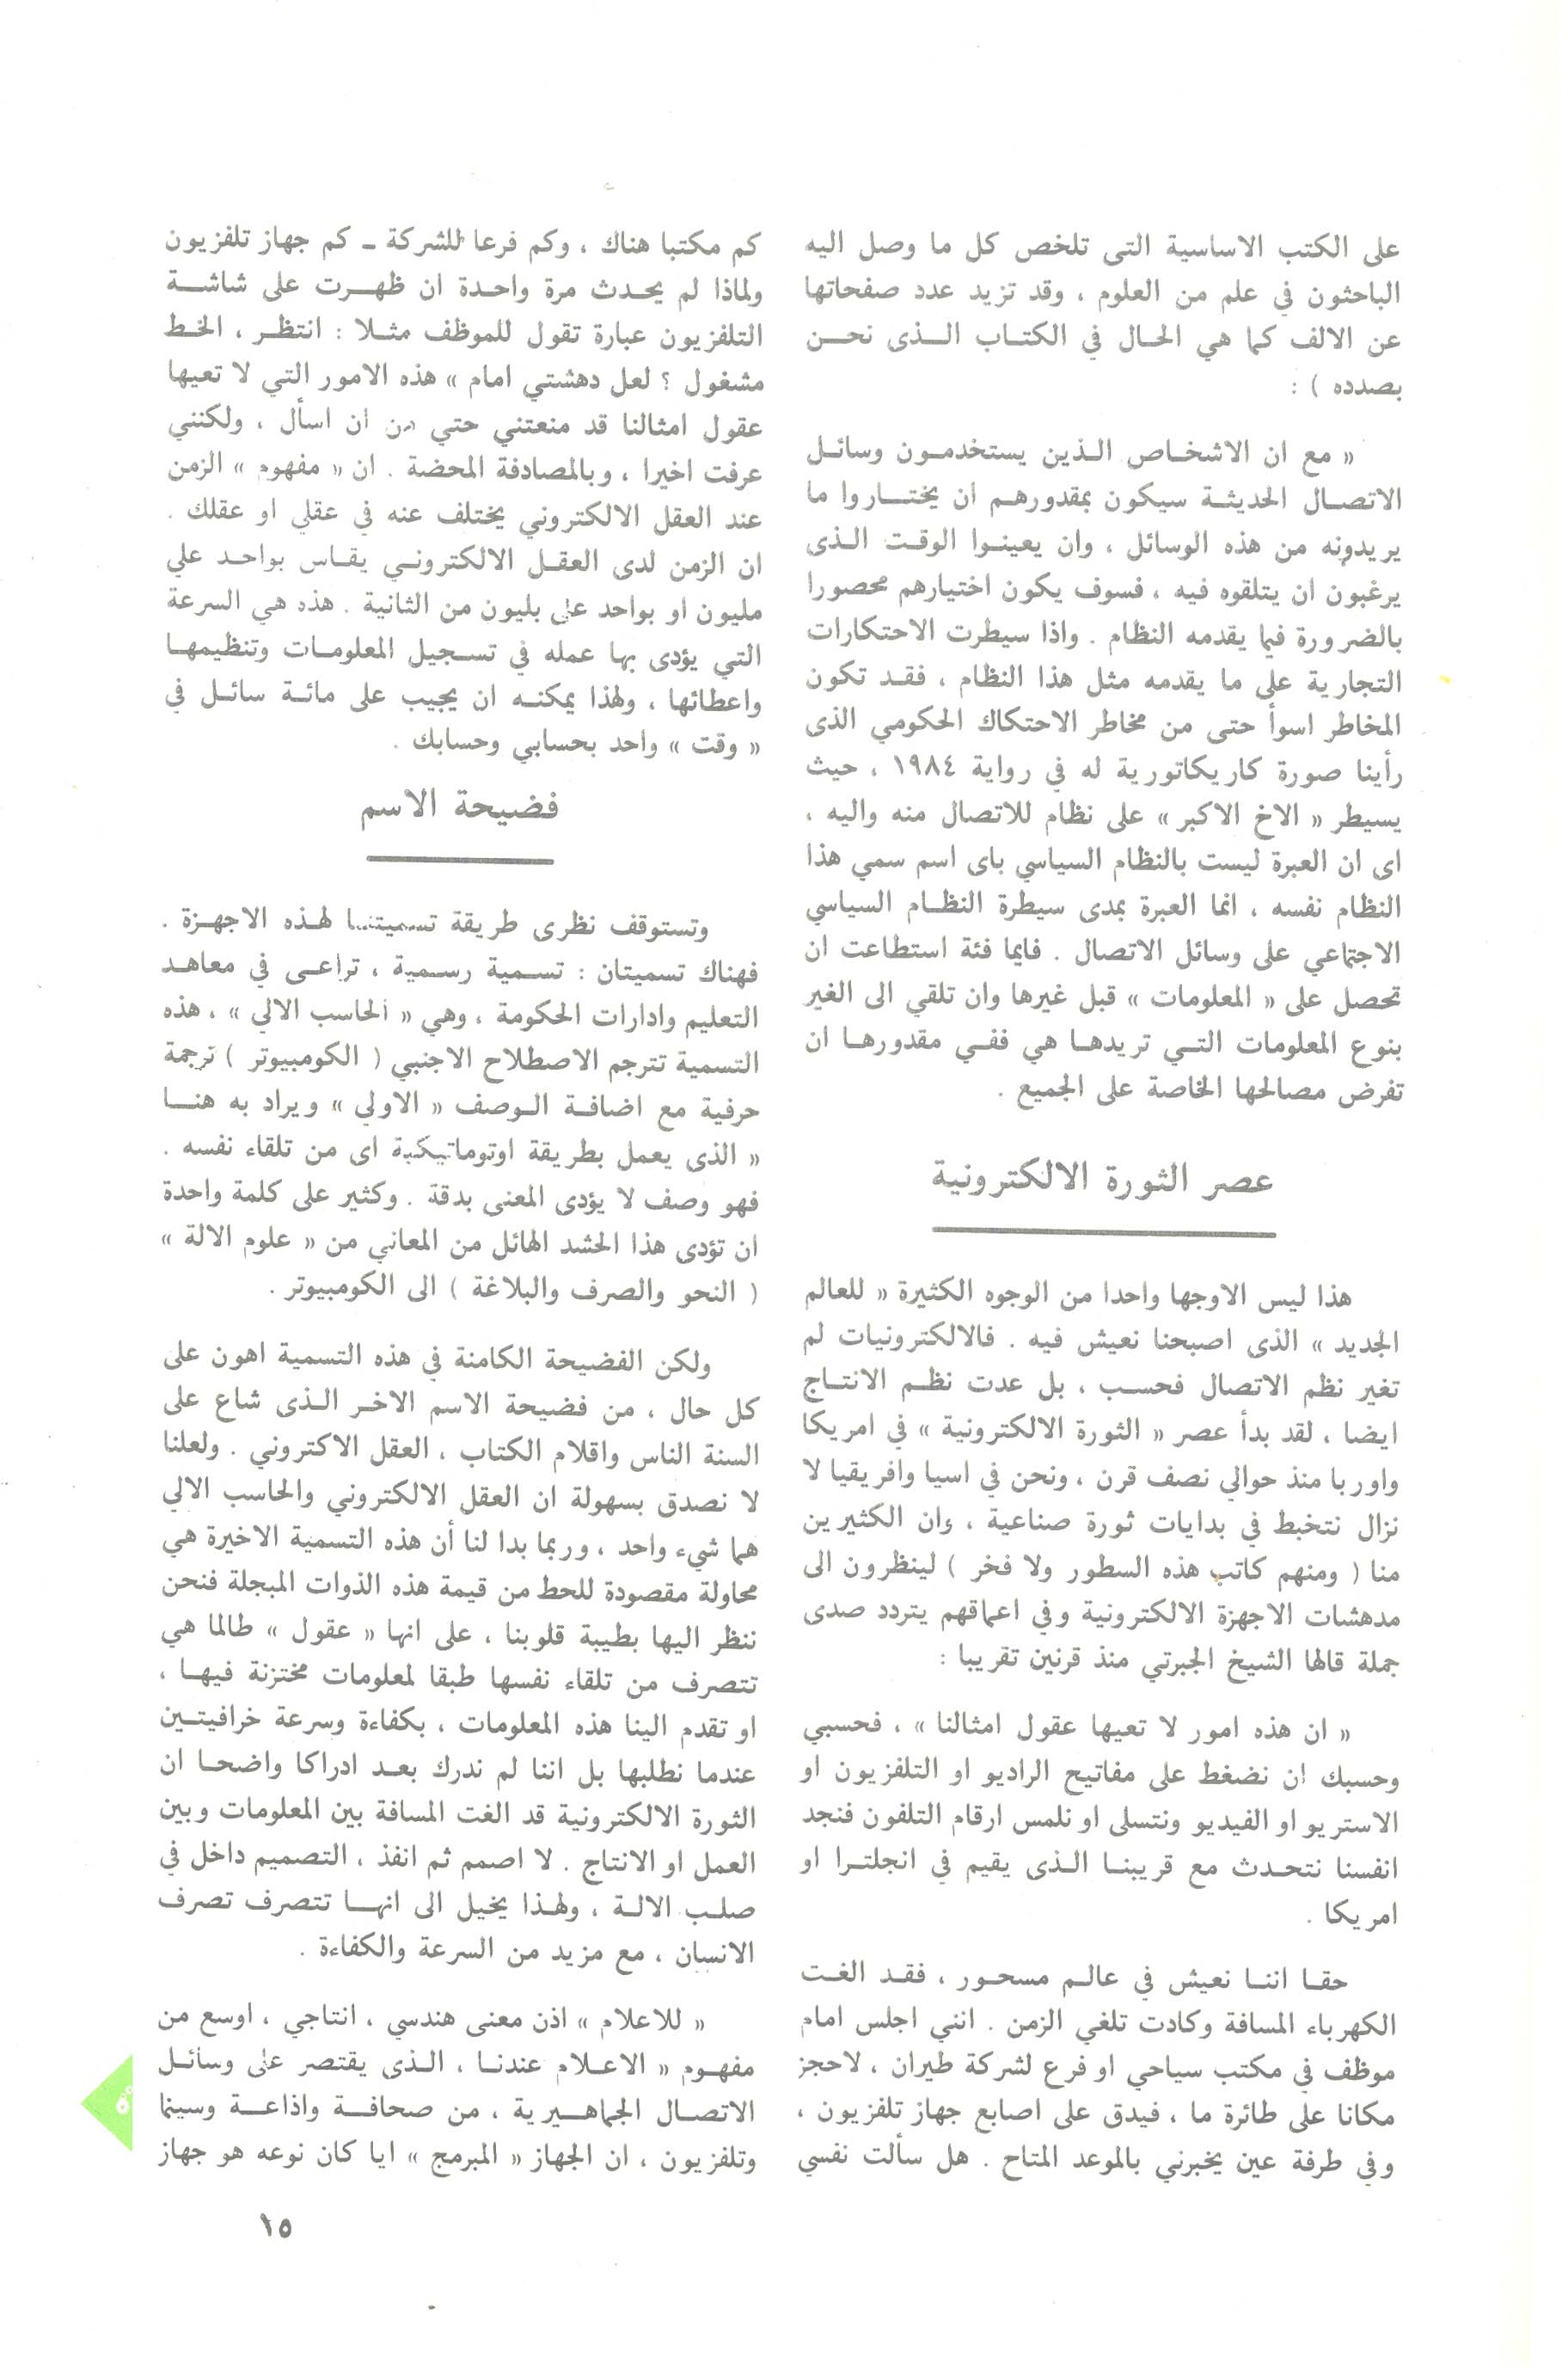 على الكتب الاساسية التى تلخص كل ما وصل اليه
الباحثون في علم من العلوم ، وقد تزيد عدد صفحاتها
عن الالف كما هي الحال في الكتاب الذى نحن
بصدده ) :
« مع ان الاشخاص الذين يستخدمون وسائل
الاتصال الحديثة سيكون بمقدورهم ان يختاروا ما
يريدونه من هذه الوسائل ، وان يعينوا الوقت الذى
يرغبون ان يتلقوه فيه ، فسوف يكون اختيارهم محصورا
بالضرورة فيما يقدمه النظام . واذا سيطرت الاحتكارات
التجارية على ما يقدمه مثل هذا النظام ، فقد تكون
المخاطر اسوأ حتى من مخاطر الاحتكاك الحكومي الذى
رأينا صورة كاريكاتورية له في رواية ١٩٨٤ ، حيث
يسيطر « الاخ الاكبر » على نظام للاتصال منه واليه ،
اى ان العبرة ليست بالنظام السياسي باى اسم سمي هذا
النظام نفسه ، انما العبرة بمدى سيطرة النظام السياسي
الاجتماعي على وسائل الاتصال . فايما فئة استطاعت ان
تحصل على « المعلومات » قبل غيرها وان تلقي الى الغير
بنوع المعلومات التي تريدها هي ففي مقدورها ان
تفرض مصالحها الخاصة على الجميع .
عصر الثورة الالكترونية
هذا ليس الاوجها واحدا من الوجوه الكثيرة « للعالم
الجديد » الذى اصبحنا نعيش فيه . فالالكترونيات لم
تغير نظم الاتصال فحسب ، بل عدت نظم الانتاج
ايضا ، لقد بدأ عصر « الثورة الالكترونية » في امريكا
واوربا منذ حوالي نصف قرن ، ونحن في اسيا وافريقيا لا
نزال نتخبط في بدايات ثورة صناعية ، وان الكثيرين
منا ( ومنهم كاتب هذه السطور ولا فخر ) لينظرون الى
مدهشات الاجهزة الالكترونية وفي اعماقهم يتردد صدى
جملة قالها الشيخ الجبرتي منذ قرنين تقريبا :
« ان هذه امور لا تعيها عقول امثالنا » ، فحسبي
وحسبك ان نضغط على مفاتيح الراديو او التلفزيون او
الاستريو او الفيديو ونتسلى او نلمس ارقام التلفون فنجد
انفسنا نتحدث مع قريبنا الذى يقيم في انجلترا او
امريكا .
حقا اننا نعيش في عالم مسحور ، فقد الغت
الكهرباء المسافة وكادت تلغي الزمن . انني اجلس امام
موظف في مكتب سياحي او فرع لشركة طيران ، لاحجز
مكانا على طائرة ما ، فيدق على اصابع جهاز تلفزيون ،
وفي طرفة عين يخبرني بالموعد المتاح . هل سألت نفسي
كم مكتبا هناك ، وكم فرعا للشركة ـ كم جهاز تلفزيون
ولماذا لم يحدث مرة واحدة ان ظهرت على شاشة
التلفزيون عبارة تقول للموظف مثلا : انتظر ، الخط
مشغول ؟ لعل دهشتي امام » هذه الامور التي لا تعيها
عقول امثالنا قد منعتني حتي من ان اسأل ، ولكنني
عرفت اخيرا ، وبالمصادفة المحضة . ان « مفهوم » الزمن
عند العقل الالكتروني يختلف عنه في عقلي او عقلك .
ان الزمن لدى العقل الالكتروني يقاس بواحد علي
مليون او بواحد على بليون من الثانية . هذه هي السرعة
التي يؤدى بها عمله في تسجيل المعلومات وتنظيمها
واعطائها ، ولهذا يمكنه ان يجيب على مائة سائل في
« وقت » واحد بحسابي وحسابك .
فضيحة الاسم
وتستوقف نظرى طريقة تسميتنا لهذه الاجهزة .
فهناك تسميتان : تسمية رسمية ، تراعى في معاهد
التعليم وادارات الحكومة ، وهي « الحاسب الالي » ، هذه
التسمية تترجم الاصطلاح الاجنبي ( الكومبيوتر ) ترجمة
حرفية مع اضافة الوصف « الاولي » ويراد به هنا
« الذى يعمل بطريقة اوتوماتيكية اى من تلقاء نفسه .
فهو وصف لا يؤدى المعنى بدقة . وكثير على كلمة واحدة
ان تؤدى هذا الحشد الهائل من المعاني من « علوم الالة »
( النحو والصرف والبلاغة ) الى الكومبيوتر .
ولكن الفضيحة الكامنة في هذه التسمية اهون على
كل حال ، من فضيحة الاسم الاخر الذى شاع على
السنة الناس واقلام الكتاب ، العقل الاكتروني . ولعلنا
لا نصدق بسهولة ان العقل الالكتروني والحاسب الالي
هما شيء واحد ، وربما بدا لنا أن هذه التسمية الاخيرة هي
محاولة مقصودة للحط من قيمة هذه الذوات المبجلة فنحن
ننظر اليها بطيبة قلوبنا ، على انها « عقول » طالما هي
تتصرف من تلقاء نفسها طبقا لمعلومات مختزنة فيها ،
او تقدم الينا هذه المعلومات ، بكفاءة وسرعة خرافيتين
عندما نطلبها بل اننا لم ندرك بعد ادراكا واضحا ان
الثورة الالكترونية قد الغت المسافة بين المعلومات وبين
العمل او الانتاج . لا اصمم ثم انفذ ، التصميم داخل في
صلب الالة ، ولهذا يخيل الى انها تتصرف تصرف
الانسان ، مع مزيد من السرعة والكفاءة .
« للاعلام » اذن معنى هندسي ، انتاجي ، اوسع من
مفهوم « الاعلام عندنا ، الذى يقتصر على وسائل
الاتصال الجماهيرية ، من صحافة واذاعة وسينما
وتلفزيون ، ان الجهاز « المبرمج » ايا كان نوعه هو جهاز
١٥